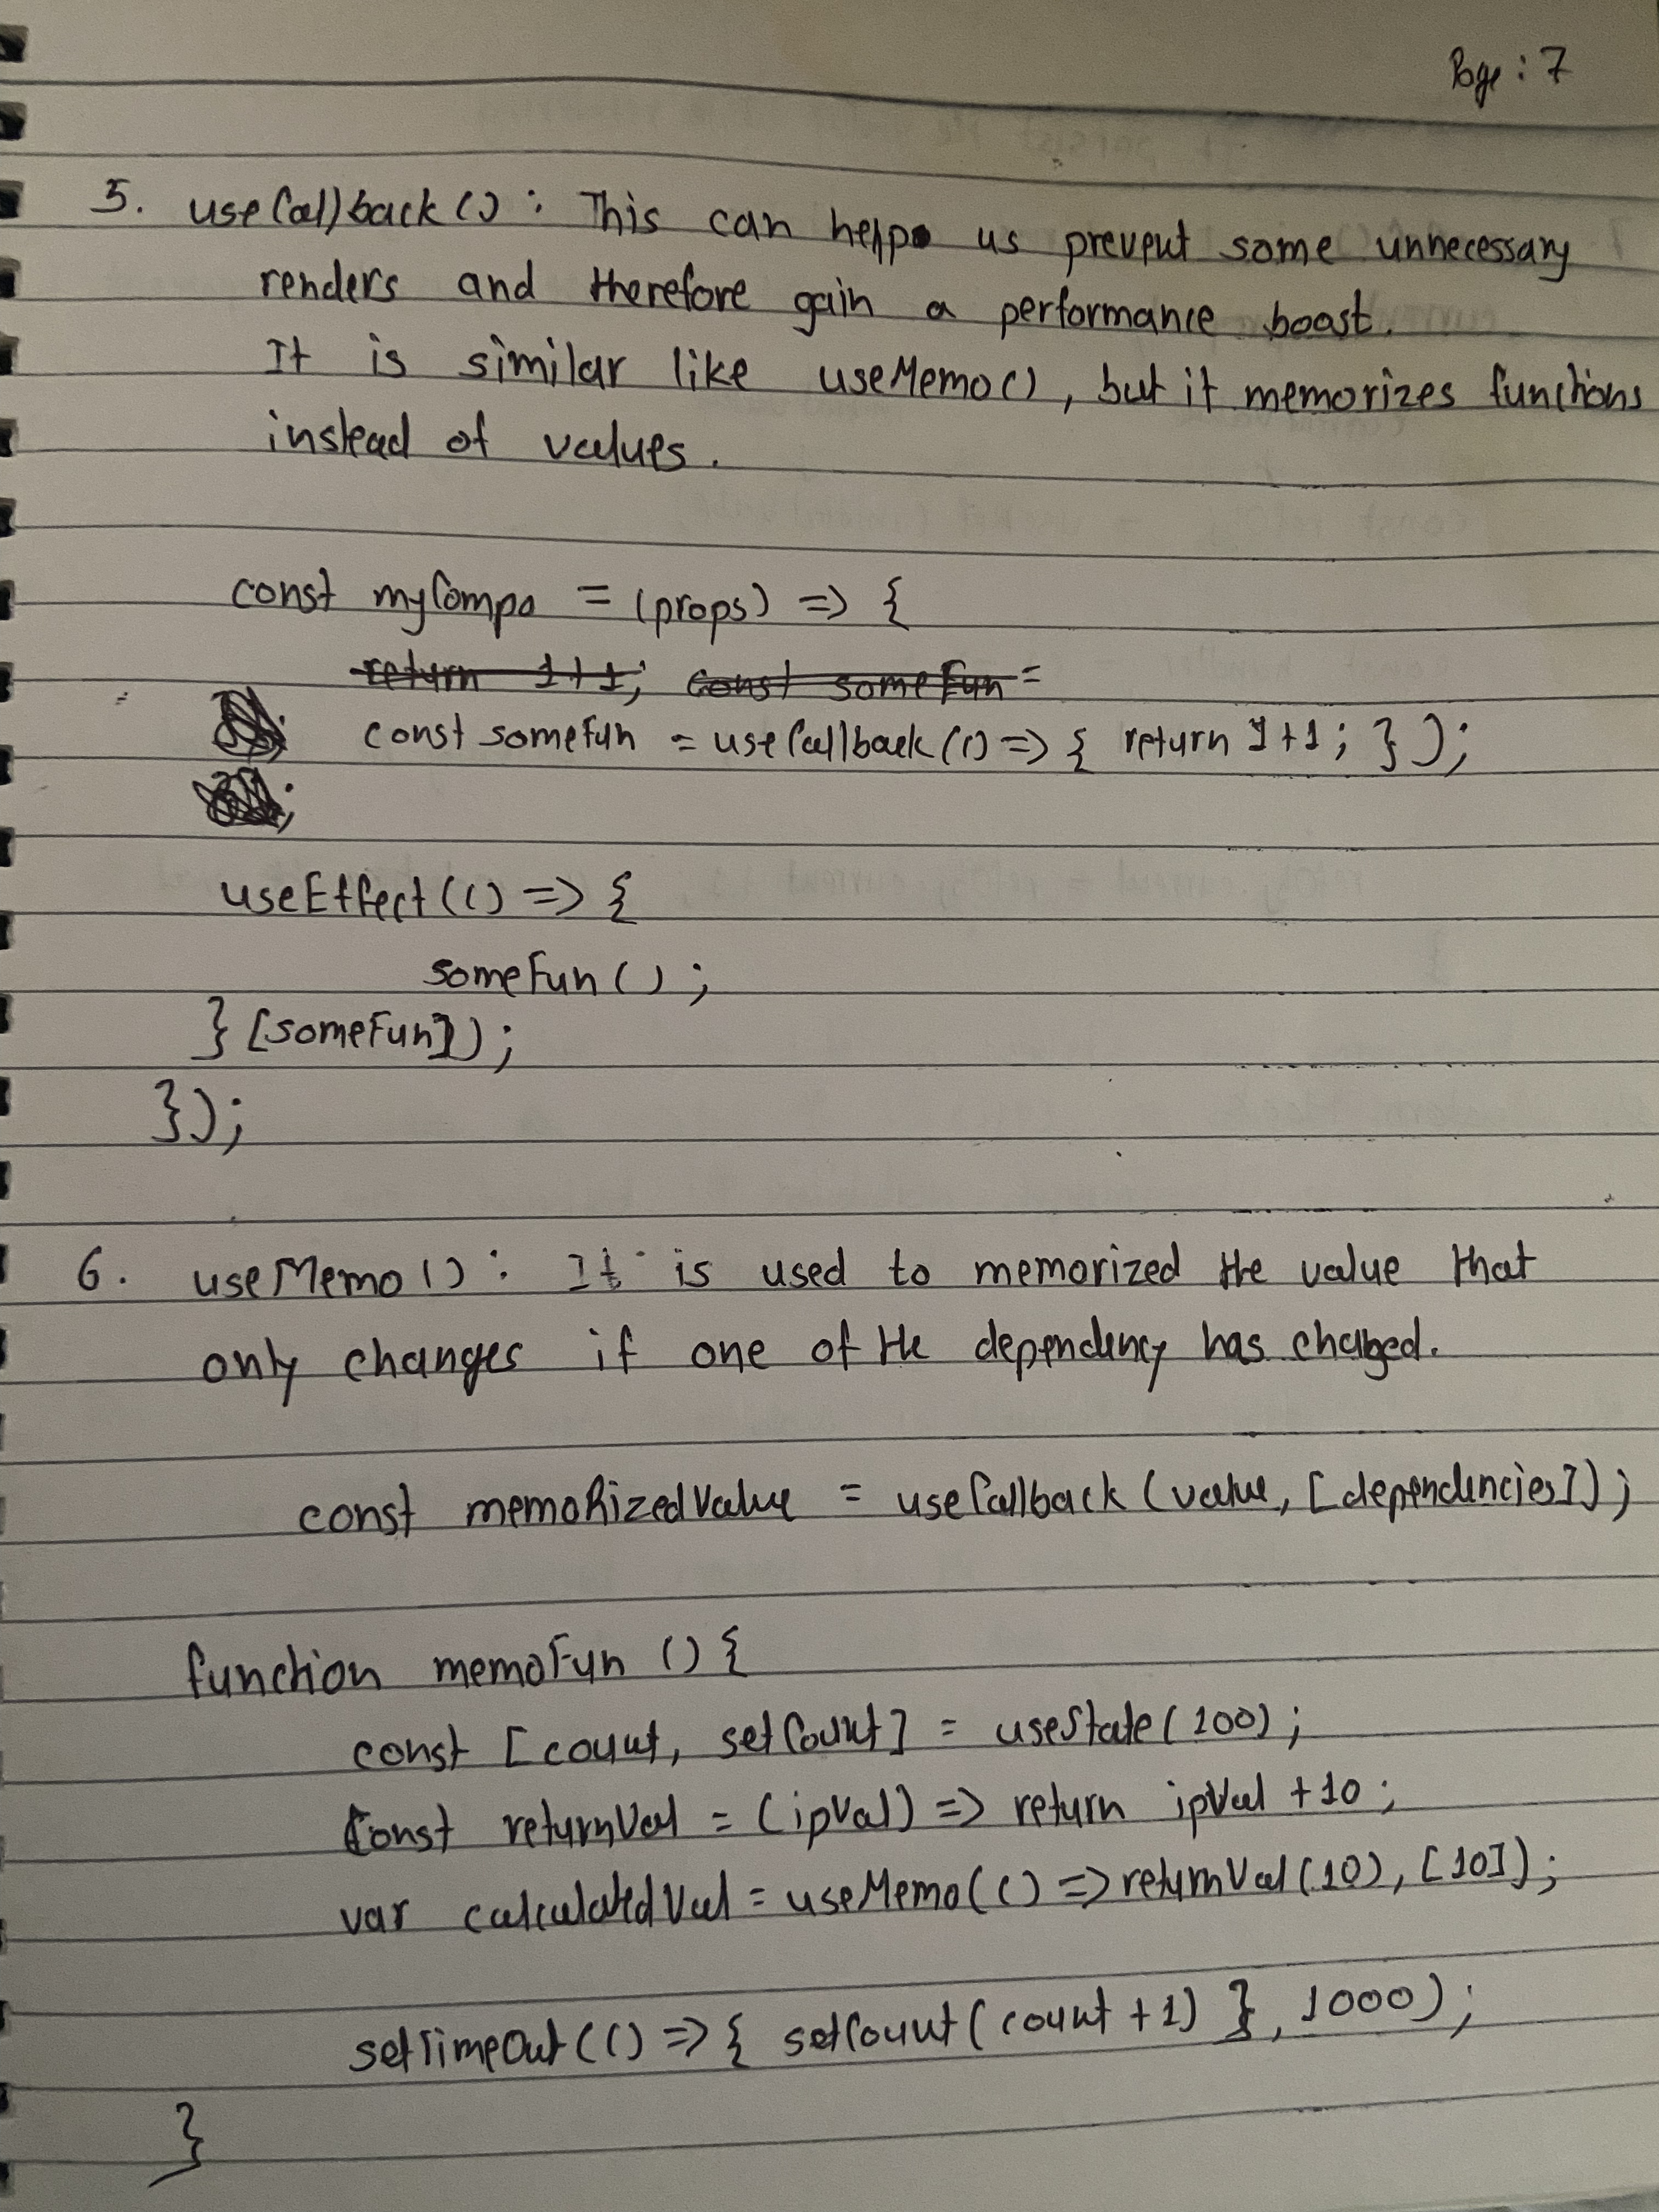 Page : 7
5. useCallback() : This can help us prevent some unnecessary
renders and therefore gain a performance boost.
It is similar like useMemo(), but it memorizes functions
instead of values.
const myCompo = (props) => {
return 1+1; const someFun =
const someFun = useCallback(() => { return 1+1; });
useEffect(() => {
someFun();
} [someFun]);
});
6. useMemo() : It is used to memorized the value that
only changes if one of the dependency has changed.
const memoRizedValue = useCallback(value, [dependencies]);
function memoFun () {
const [count, setCount] = useState(100);
Const returnVal = (ipVal) => return ipVal +10;
var calculatedVal = useMemo(() => returnVal(10), [10]);
setTimeOut(() => { setCount(count +1) }, 1000);
}